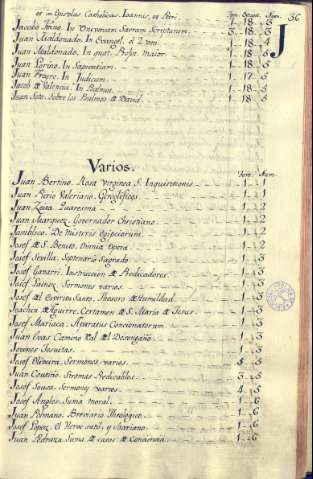 et in Epistolas Catholicas Ioannis, et Petri. Tom. Estan. Num. 36
1 - 18 - 3
Jacobo Tirino. In Universam Sacram Scripturam. 3 - 18 - 3 J
Juan Maldonado. In Evangel. el 2 tom. 1 - 18 - 4
Juan Maldonado. In quat. Profet. maior. 1 - 18 - 5
Juan Lorino. In Sapientiam. 1 - 18 - 5
Juan Freyre. In Judicum. 1 - 17 - 5
Jacob de Valencia. In Psalmos. 1 - 18 - 5
Juan Soto. Sobre los Psalmos de David. 1 - 18 - 5
Varios.
Tom. Num.
Juan Bertino. Rosa Virginea S. Inquisitionis 1 - 1
Juan Pierio Valeriano. Geroglificos. 1 - 1
Juan Zeita. Quaresma 1 - 2
Juan Marquez. Governador Christiano. 1 - 2
Jamblico. De Misteris Egipciorum 1 - 2
Josef de S. Benito. Omnia Opera 1 - 2
Josef Sevilla. Septenario Sagrado 1 - 3
Josef Gavarri. Instruccion de Predicadores. 1 - 3
Josef Lainez. Sermones varios. 1 - 3
Josef del Espiritu Santo. Thesoro de Humildad 1 - 3
Joachin de Aguirre. Certamen de S. Maria de Jesus 1 - 3
Josef Mariaca. Aparatus Concionatorum 1 - 3
Juan Evas. Camino Real del Desengaño 1 - 3
Jovenes Jesuitas 1 - 3
Josef Olivera. Sermones varios. 5 - 3
Juan Coutiño. Stromas Predicables. 3 - 5
Josef Sousa. Sermones varios 4 - 5
Josef Angles. Suma moral. 1 - 6
Juan Romano. Breviario Theologico 1 - 6
Josef Lopez. El Heroe subtil, y Mariano 1 - 6
Juan Pedraza. Suma de casos de Conciencia 1 - 6